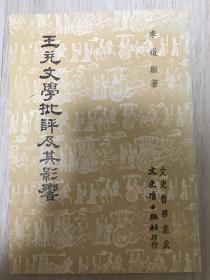 李道顯著
王充文學批評及其影響
文史哲學集成
文史哲出版社印行